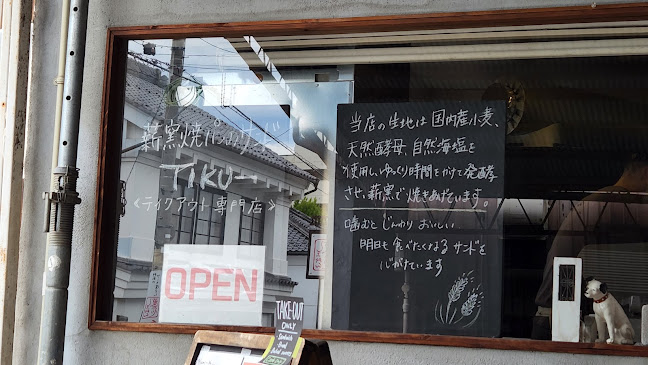 薪窯焼パンのサンド
TIKU
<テイクアウト専門店>
OPEN
TAKE-OUT
ONLY
当店の生地は国内産小麦、
天然酵母、自然海塩を
使用し、ゆっくり時間をかけて発酵
させ、薪窯で焼きあげています。
噛むとじんわりおいしい
明日も食べたくなるサンドを
心がけています